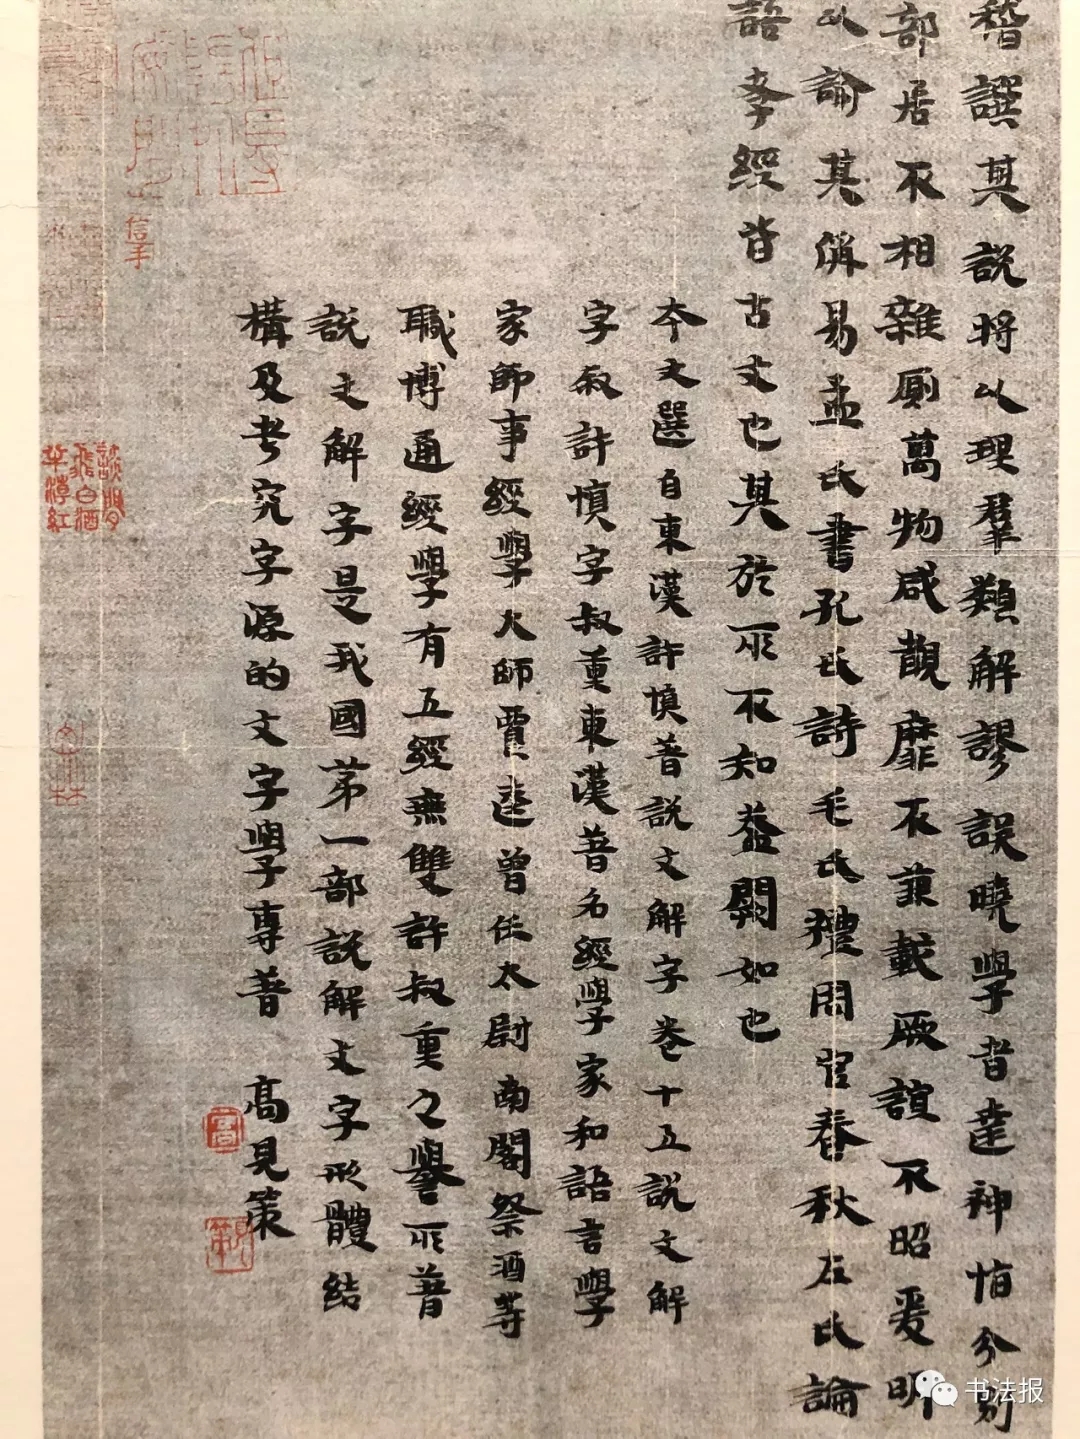 稽譔其說將以理羣類解謬誤曉學者達神恉分別
部居不相雜厠萬物咸覩靡不兼載厥誼不昭爰明
以諭其偁易孟氏書孔氏詩毛氏禮周官春秋左氏論
語孝經皆古文也其於所不知葢闕如也
本文選自東漢許慎著說文解字卷十五說文解
字叙許慎字叔重東漢著名經學家和語言學
家師事經學大師賈逵曾任太尉南閣祭酒等
職博通經學有五經無雙許叔重之譽所著
說文解字是我國第一部說解文字形體結
構及考究字源的文字學專著 高見策
信手
書法报